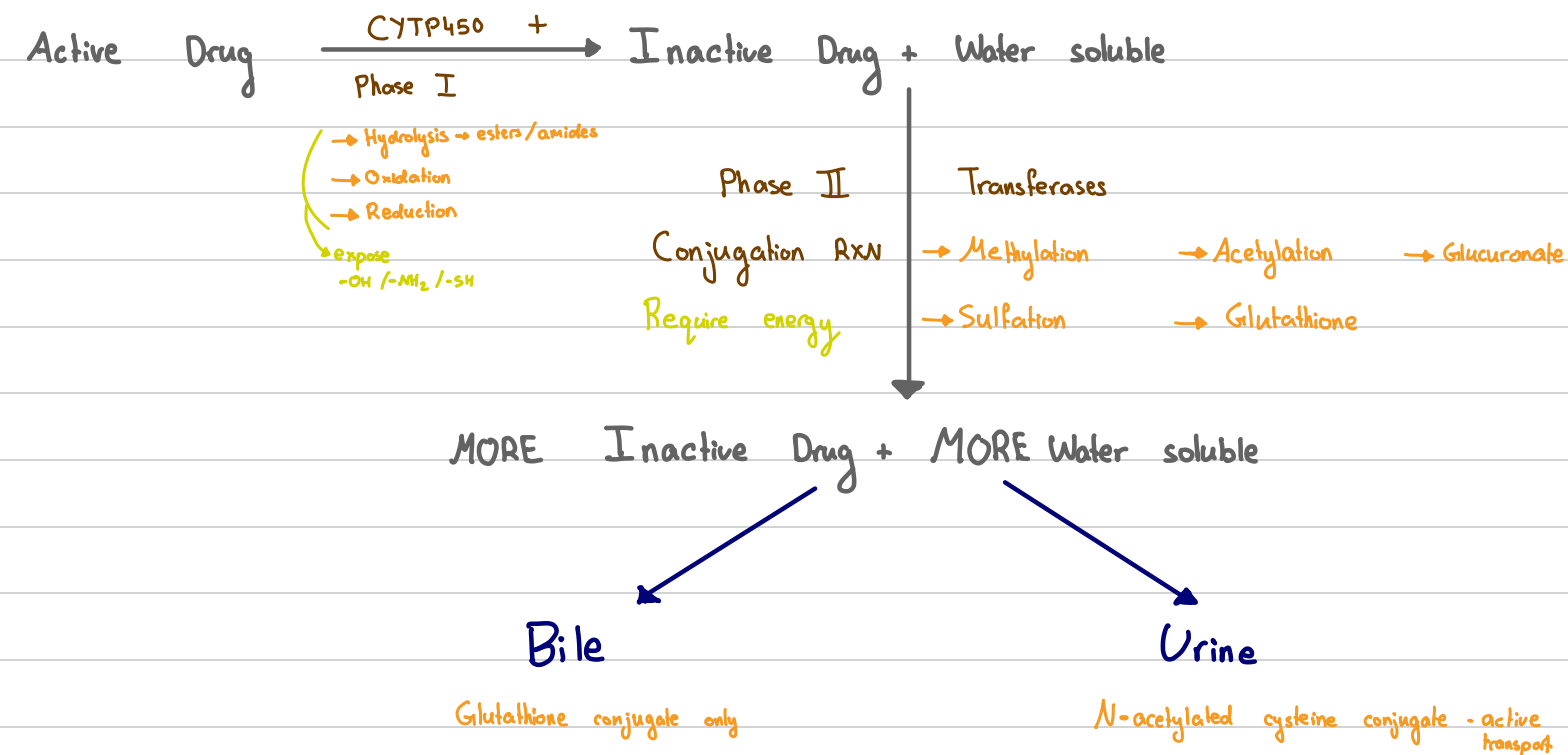 CYTP450 +
Active Drug → Inactive Drug + Water soluble
Phase I
→ Hydrolysis → esters/amides
→ Oxidation
→ Reduction
expose
-OH /-NH₂ /-SH
Phase II Transferases
Conjugation RXN → Methylation → Acetylation → Glucuronate
Require energy → Sulfation → Glutathione
MORE Inactive Drug + MORE Water soluble
Bile Urine
Glutathione conjugate only N-acetylated cysteine conjugate - active
transport